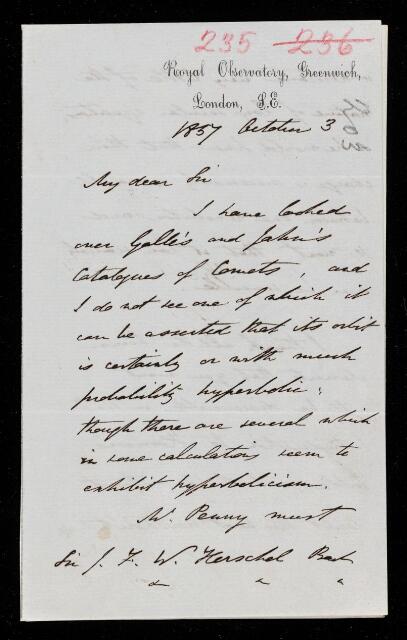 235 236
Royal Observatory, Greenwich,
London, S.E.
1857 October 3
My dear Sir
I have looked
over Galle's and Jahn's
Catalogues of Comets, and
I do not see one of which it
can be asserted that its orbit
is certainly or with much
probability hyperbolic:
though there are several which
in some calculations seem to
exhibit hyperbolicism.
Mr. Penny must
Sir J. F. W. Herschel Bart